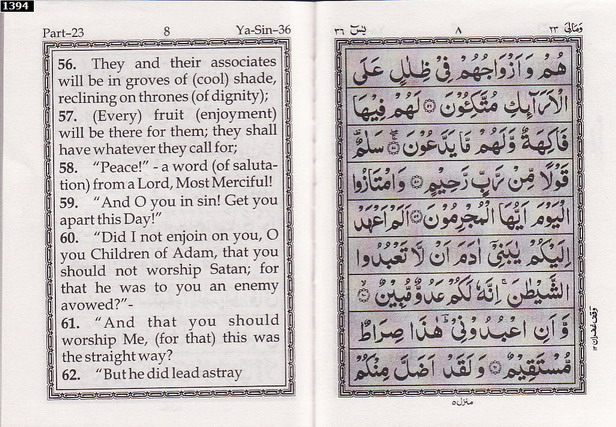 1394
Part–23 8 Ya-Sin–36
56. They and their associates
will be in groves of (cool) shade,
reclining on thrones (of dignity);
57. (Every) fruit (enjoyment)
will be there for them; they shall
have whatever they call for;
58. “Peace!” - a word (of saluta-
tion) from a Lord, Most Merciful!
59. “And O you in sin! Get you
apart this Day!”
60. “Did I not enjoin on you, O
you Children of Adam, that you
should not worship Satan; for
that he was to you an enemy
avowed?”-
61. “And that you should
worship Me, (for that) this was
the straight way?
62. “But he did lead astray
ومالی ۲۳ ۸ يٰسٓ ۳۶
هُمْ وَاَزْوَاجُهُمْ فِيْ ظِلٰلٍ عَلَى
الْاَرَآىِٕكِ مُتَّكِـُٔوْنَ ۝۵۶ لَهُمْ فِيْهَا
فَاكِهَةٌ وَّلَهُمْ مَّا يَدَّعُوْنَ ۝۵۷ سَلٰمٌ
قَوْلًا مِّنْ رَّبٍّ رَّحِيْمٍ ۝۵۸ وَامْتَازُوا
الْيَوْمَ اَيُّهَا الْمُجْرِمُوْنَ ۝۵۹ اَلَمْ اَعْهَدْ
اِلَيْكُمْ يٰبَنِيْٓ اٰدَمَ اَنْ لَّا تَعْبُدُوا
الشَّيْطٰنَ ۚ اِنَّهٗ لَكُمْ عَدُوٌّ مُّبِيْنٌ ۝۶۰
وَّاَنِ اعْبُدُوْنِيْ ؕ هٰذَا صِرَاطٌ
مُّسْتَقِيْمٌ ۝۶۱ وَلَقَدْ اَضَلَّ مِنْكُمْ
وقف غفران
منزل ۵